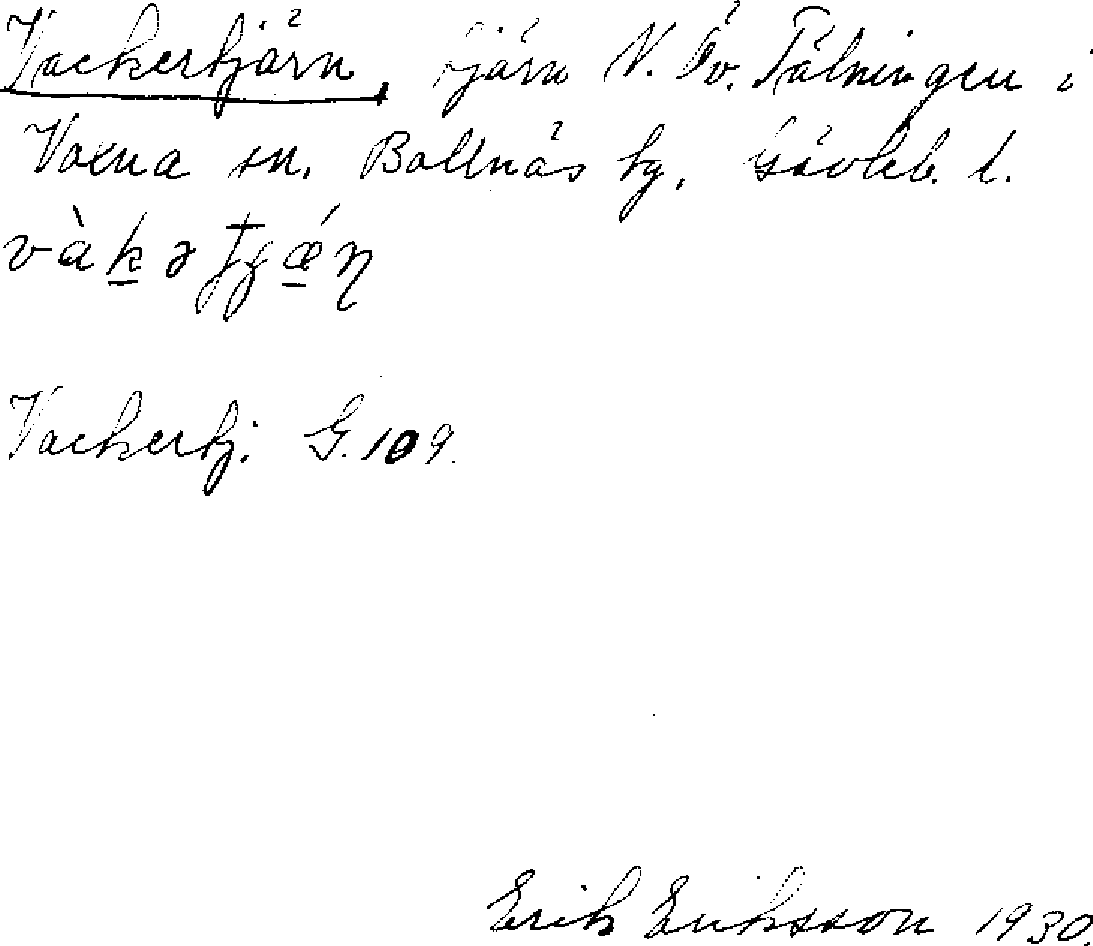 Vackertjärn, tjärn N. Öv. Tälningen i
Voxna sn. Bollnäs tg, Gävleb. l.
vàkəʈʂǽɳ
Vackertj. G. 109.
Erik Eriksson 1930.